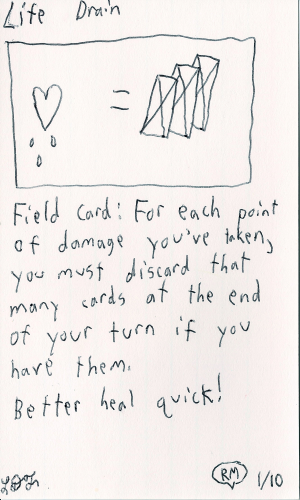 Life Drain
=
Field Card: For each point
of damage you've taken,
you must discard that
many cards at the end
of your turn if you
have them.
Better heal quick!
RM 1/10